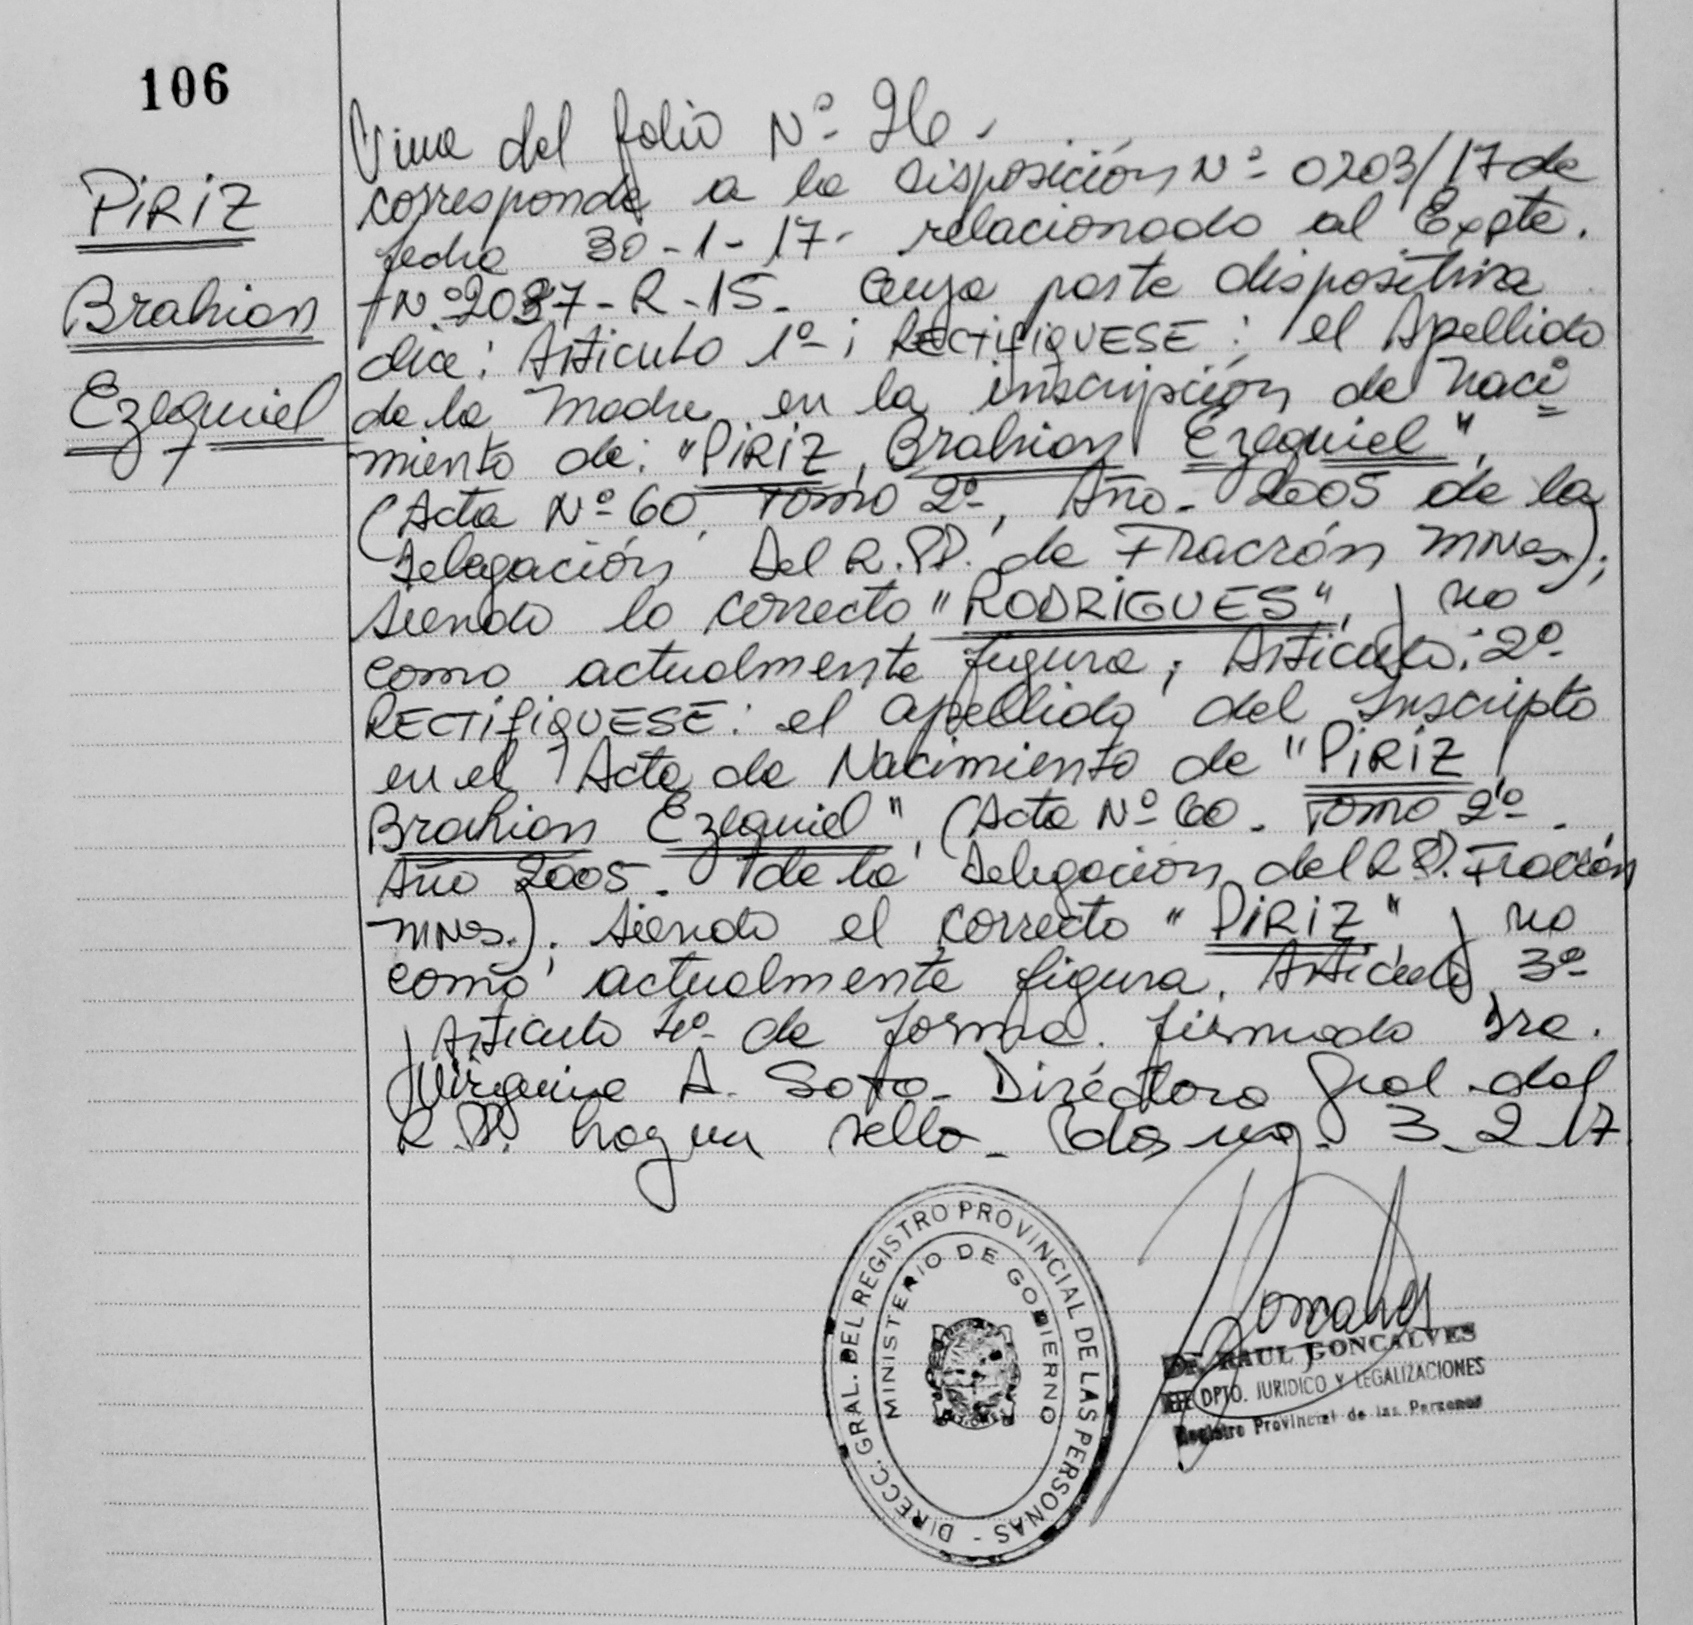 106
PiRiZ
Brahian
Ezequiel
Viene del folio Nº 26.
corresponde a la Disposición Nº 0203/17 de
fecha 30-1-17- relacionado al Expte.
Nº 2037-R-15. Cuya parte dispositiva
dice: Artículo 1º; RECTIFIQUESE: el Apellido
de la Madre en la inscripción de naci
miento de: "PiRiZ, Brahian Ezequiel",
(Acta Nº 60, Tomo 2º, Año- 2005 de la
Delegación Del R.PP. de Fracrán Mnes.);
siendo lo correcto "RODRIGUES", y no
como actualmente figura; Artículo: 2º
RECTIFIQUESE: el apellido del Inscripto
en el Acta de Nacimiento de "PiRiZ
Brahian Ezequiel", (Acta Nº 60. Tomo 2º.
Año 2005. de la Delegación del R.PP. Fracrán
Mnes.). siendo el correcto "PiRiZ" y no
como actualmente figura. Artículo 3º
y Artículo 4º de forma. firmado Dra.
Virginia A. Soto- Directora Gral. del
R.PP. hay un sello- Posadas 3-2-17
DIRECC. GRAL. DEL REGISTRO PROVINCIAL DE LAS PERSONAS -
MINISTERIO DE GOBIERNO
Dr. RAUL GONCALVES
DPTO. JURIDICO Y LEGALIZACIONES
Registro Provincial de las Personas